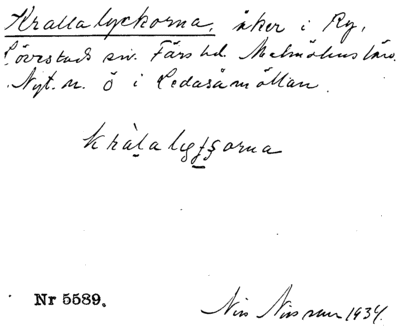 Krallalyckorna, åker i Ry,
Lövestads sn. Färs hd. Malmöhus län.
Nyt. n. ö i Ledasåmöllan.
kràlalyʃʃorna
Nr 5589.
Nils Nilsson 1934.